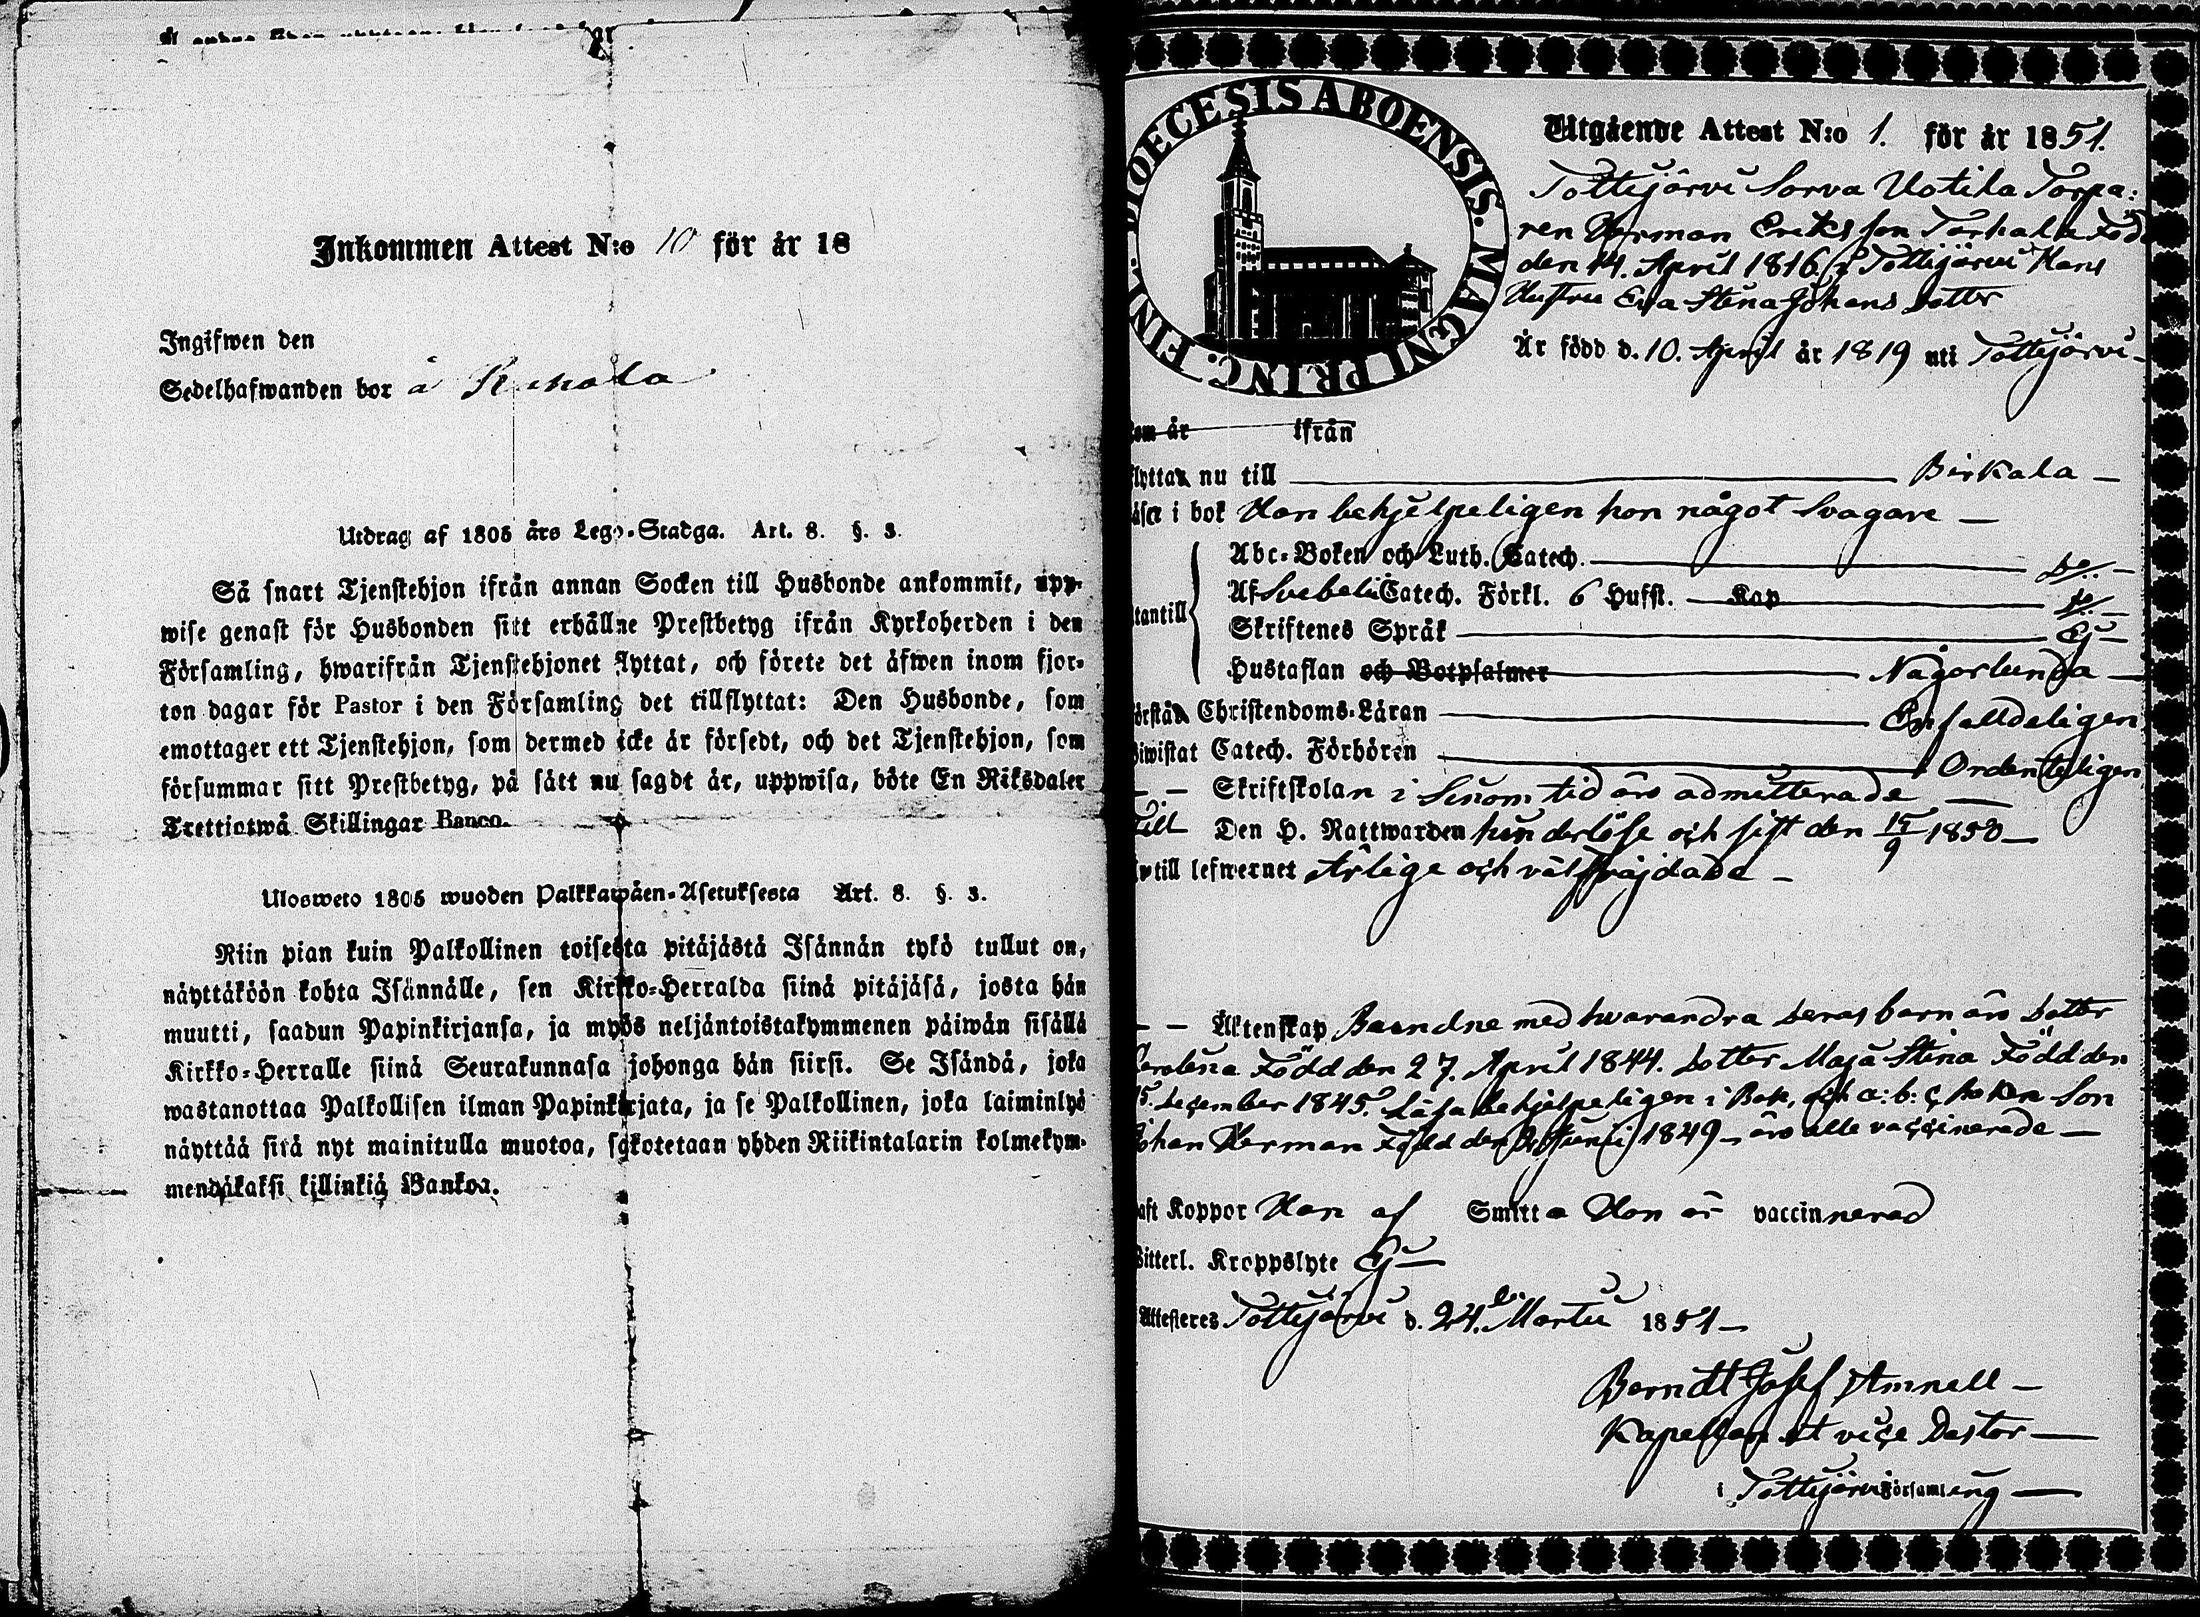 Inkommen Attest N:o 10 för år 18
Ingifwen den
Sedelhafwanden bor å
Utdrag af 1805 års Lego-Stadga. Art. 8. §. 3.
Så snart Tjenstehjon ifrån annan Socken till Husbonde ankommit, upp-
wise genast för Husbonden sitt erhållne Prestbetyg ifrån Kyrkoherden i den
Församling, hwarifrån Tjenstehjonet flyttat, och förete det äfwen inom fjor-
ton dagar för Pastor i den Församling det tillflyttat: Den Husbonde, som
emottager ett Tjenstehjon, som dermed icke är försedt, och det Tjenstehjon, som
försummar sitt Prestbetyg, på sätt nu sagdt är, uppwisa, böte En Riksdaler
Trettiotwå Skillingar Banco.
Ulosweto 1805 wuoden Palkkawäen-Asetuksesta Art. 8. §. 3.
Niin pian kuin Palkollinen toisesta pitäjästä Isännän tykö tullut on,
näyttäköön kohta Isännälle, sen Kirkko-Herralda siinä pitäjäsä, josta hän
muutti, saadun Papinkirjansa, ja myös neljäntoistakymmenen päiwän sisällä
Kirkko-Herralle siinä Seurakunnasa johonga hän siirsi. Se Isändä, joka
wastanottaa Palkollisen ilman Papinkirjata, ja se Palkollinen, joka laiminlyö
näyttää sitä nyt mainitulla muotoa, sakotetaan yhden Riikintalarin kolmekym-
mendäkaksi killinkiä Bankoa.
FINL. DIOECESIS ABOENSIS. MAGNI PRINC.
Utgående Attest N:o 1. för år 1851.
Tottijärvi Sorva Uotila Torpa:
ren Herman Eriksson Född
den 14. April 1816 i Tottijärvi Hans
Hustru Eva Stina Johans dotter
Är född d. 10. April år 1819 uti Tottijärvi
kom år ifrån
flyttar nu till Birkala
läser i bok Han behjelpeligen hon något Svagare
Abc-Boken och Luth. Catech. Do.
Af Svebelii Catech. Förkl. 6 Hufst. Kap
utantill Skriftenes Språk Ej
Hustaflan och Botpsalmer Någorlunda
förstår Christendoms-Läran Enfalldeligen
biwistat Catech. Förhören Ordenteligen
Skriftskolan i Sinom tid äro admitterade
Till Den H. Nattwarden hinderlöse och sist den 15/9 1850
till lefwernet Ärlige och välfräjdade
Äktenskap Baendne med hvarandra deras barn äro Dotter
Carolina Född den 27. April 1844. Dotter Maja Stina Född den
5. December 1845. Läsa behjelpeligen i Bok, och a:b:c boken Son
Johan Herman Född den Junii 1849 äro alle vaccinerade
haft Koppor Han af Smitta Hon är vaccinnerad
witterl. Kroppslyte Ej
Attesteras Tottijärvi d. 24. Martii 1851
Berndt Josef Amnell
Kapellan et vice Pastor
i Tottijärvi Församling